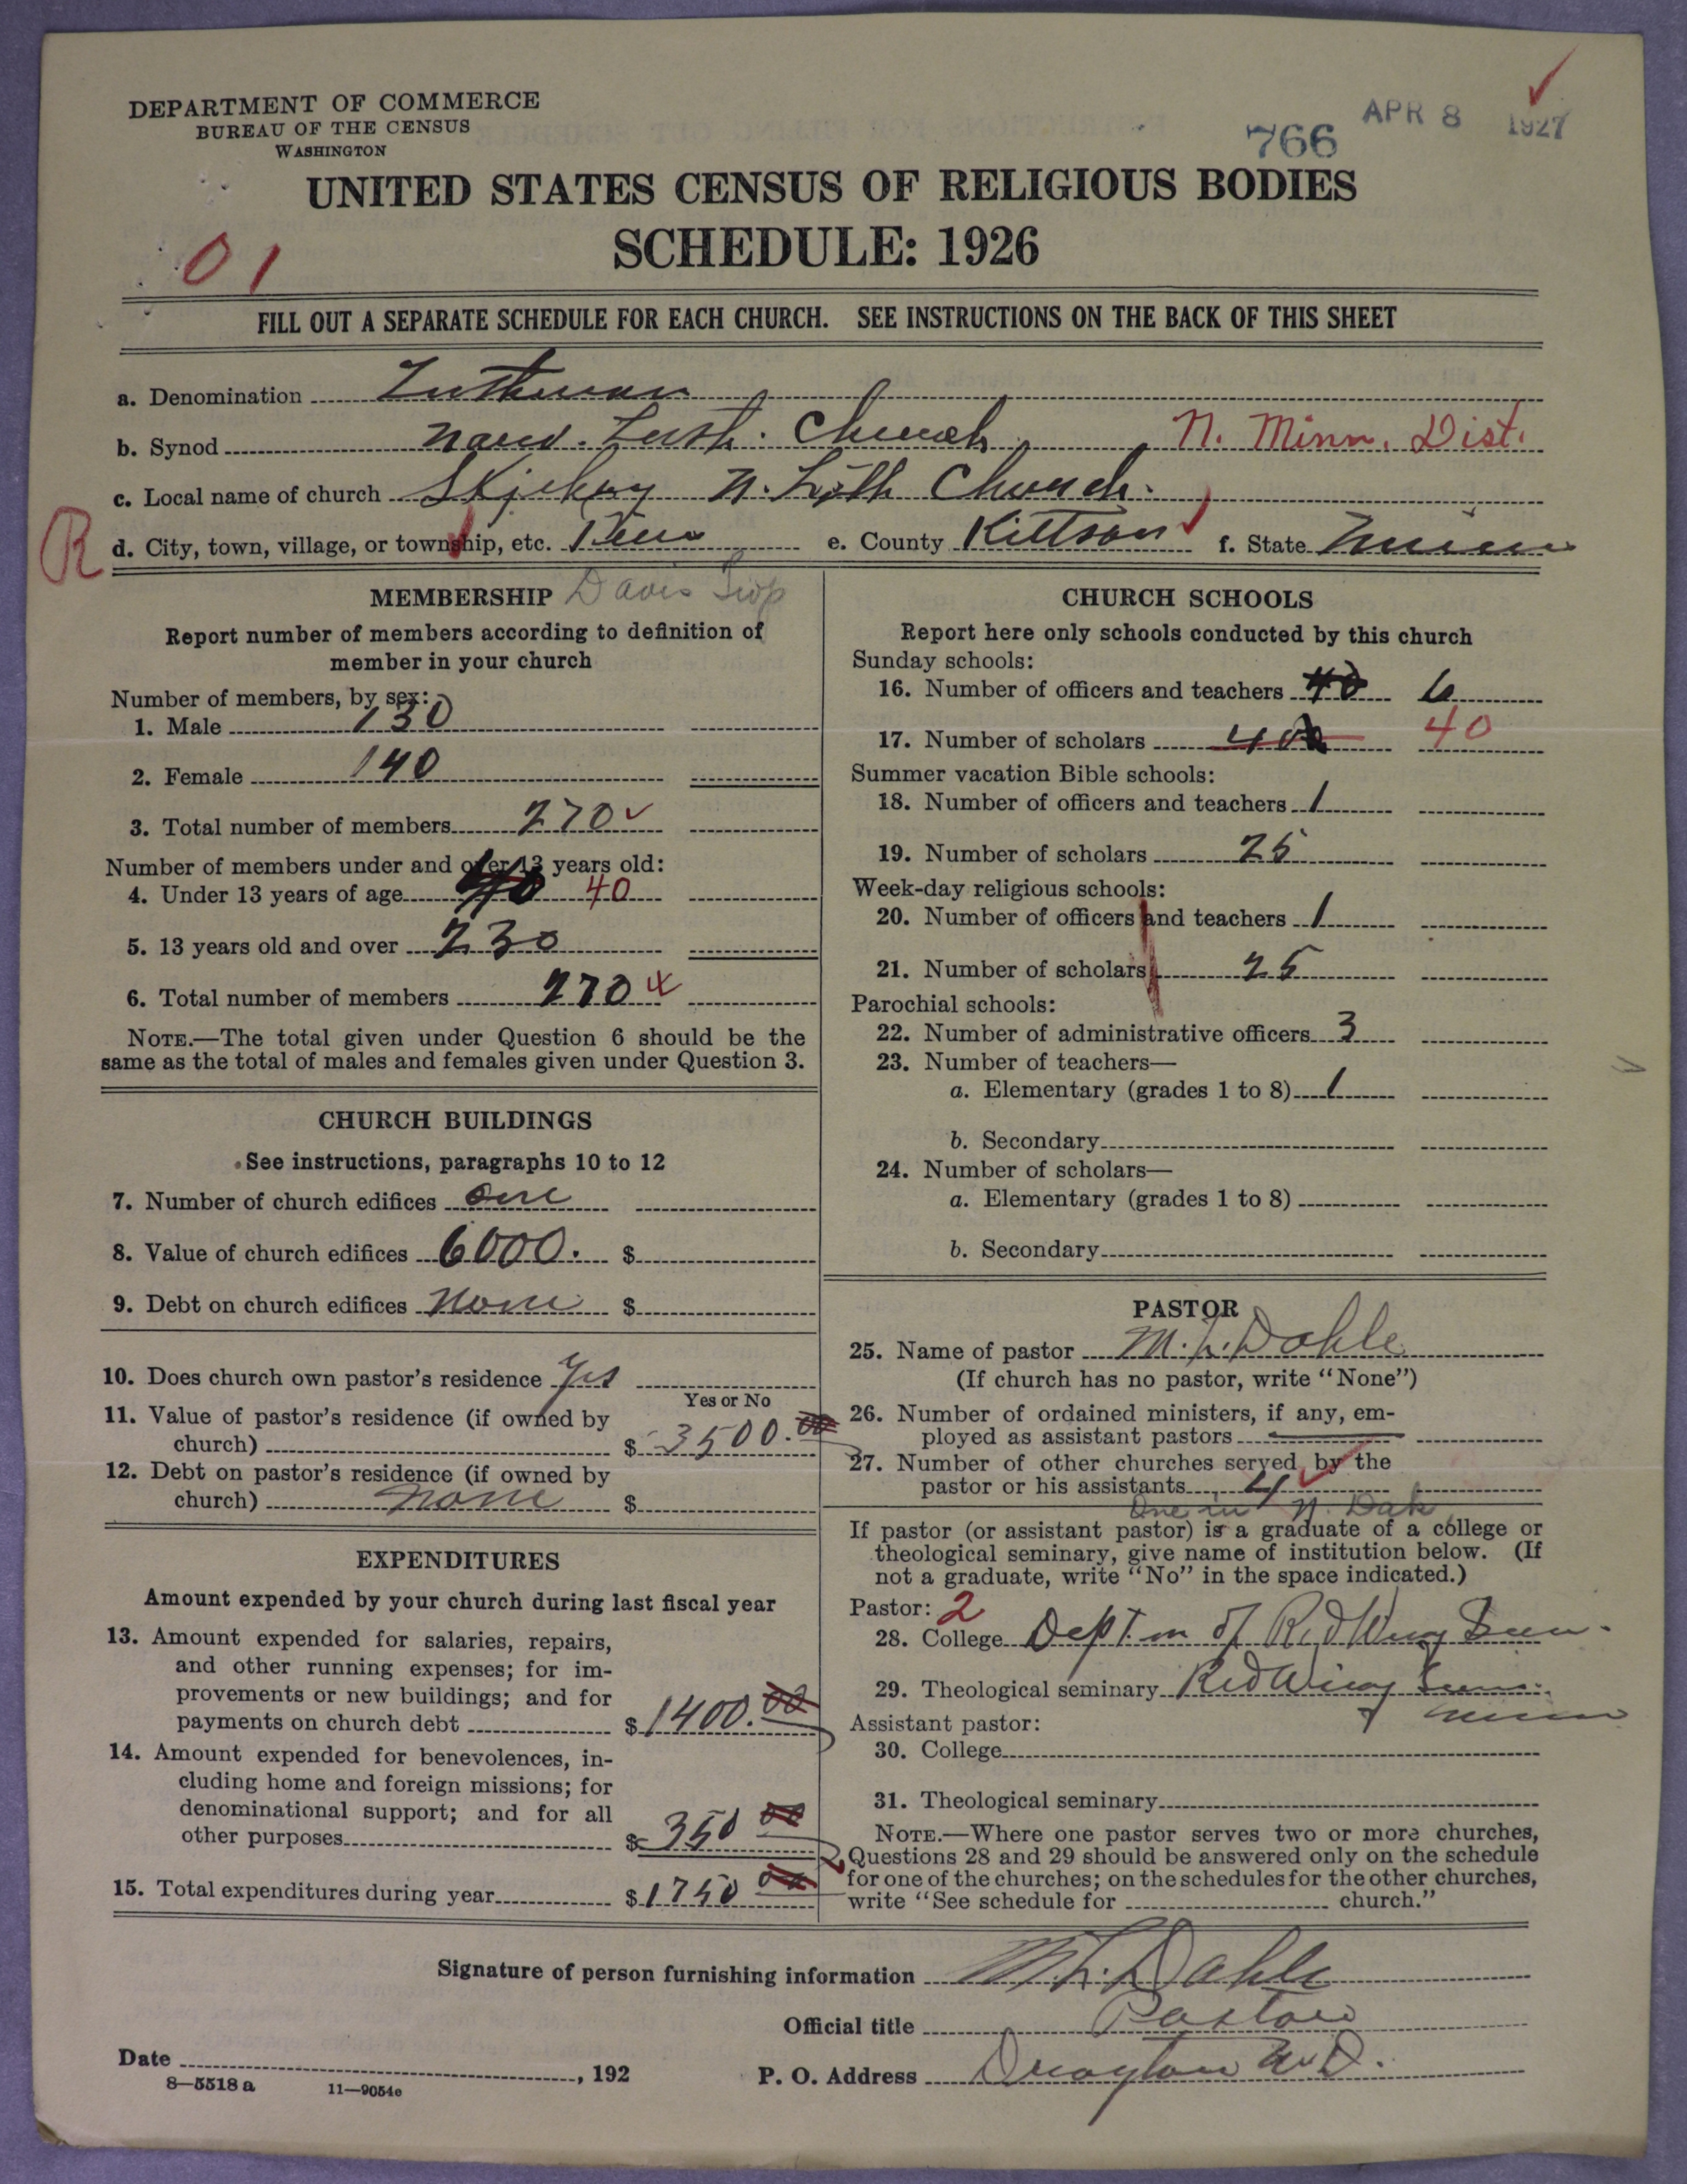 DEPARTMENT OF COMMERCE
BUREAU OF THE CENSUS
WASHINGTON
766 APR 8 1927
UNITED STATES CENSUS OF RELIGIOUS BODIES
SCHEDULE: 1926
01
FILL OUT A SEPARATE SCHEDULE FOR EACH CHURCH. SEE INSTRUCTIONS ON THE BACK OF THIS SHEET
a. Denomination Lutheran
b. Synod Norw. Luth. Church N. Minn. Dist.
c. Local name of church N. Luth Church.
R d. City, town, village, or township, etc. e. County Kittson f. State Minn
MEMBERSHIP Davis Twp
Report number of members according to definition of
member in your church
Number of members, by sex:
1. Male 130
2. Female 140
3. Total number of members 270
Number of members under and over 13 years old:
4. Under 13 years of age 40 40
5. 13 years old and over 230
6. Total number of members 270
NOTE.—The total given under Question 6 should be the
same as the total of males and females given under Question 3.
CHURCH BUILDINGS
See instructions, paragraphs 10 to 12
7. Number of church edifices One
8. Value of church edifices 6000. $
9. Debt on church edifices None $
10. Does church own pastor's residence Yes
Yes or No
11. Value of pastor's residence (if owned by
church) $ 3500.00
12. Debt on pastor's residence (if owned by
church) None $
EXPENDITURES
Amount expended by your church during last fiscal year
13. Amount expended for salaries, repairs,
and other running expenses; for im-
provements or new buildings; and for
payments on church debt $ 1400.00
14. Amount expended for benevolences, in-
cluding home and foreign missions; for
denominational support; and for all
other purposes $ 350 00
15. Total expenditures during year $ 1750 00
CHURCH SCHOOLS
Report here only schools conducted by this church
Sunday schools:
16. Number of officers and teachers 40 6
17. Number of scholars 40 40
Summer vacation Bible schools:
18. Number of officers and teachers 1
19. Number of scholars 25
Week-day religious schools:
20. Number of officers and teachers 1
21. Number of scholars 25
Parochial schools:
22. Number of administrative officers 3
23. Number of teachers—
a. Elementary (grades 1 to 8) 1
b. Secondary
24. Number of scholars—
a. Elementary (grades 1 to 8)
b. Secondary
PASTOR
25. Name of pastor M. L. Dahle
(If church has no pastor, write "None")
26. Number of ordained ministers, if any, em-
ployed as assistant pastors
27. Number of other churches served by the
pastor or his assistants 4
One in N. Dak
If pastor (or assistant pastor) is a graduate of a college or
theological seminary, give name of institution below. (If
not a graduate, write "No" in the space indicated.)
Pastor: 2
28. College Dept. of Red Wing Sem.
29. Theological seminary Red Wing Sem.
Minn
Assistant pastor:
30. College
31. Theological seminary
NOTE.—Where one pastor serves two or more churches,
Questions 28 and 29 should be answered only on the schedule
for one of the churches; on the schedules for the other churches,
write "See schedule for church."
Signature of person furnishing information M. L. Dahle
Official title Pastor
Date , 192 P. O. Address Drayton N.D.
8—5518 a 11—9054e